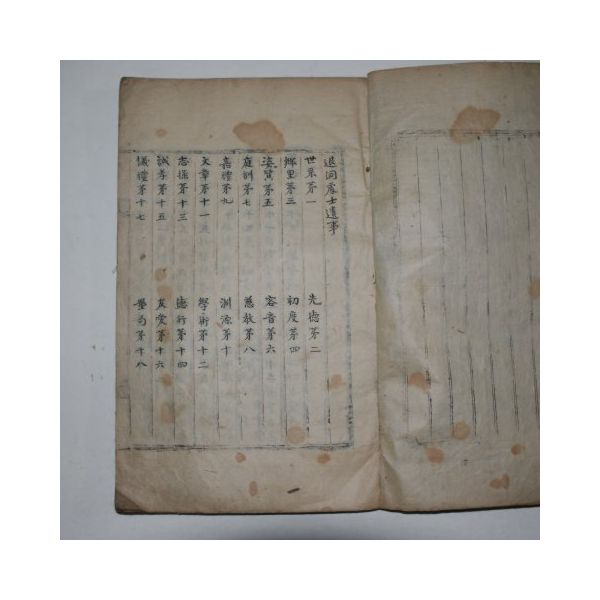 退洞處士遺事
世系第一 先德第二
鄉里第三 初度第四
姿質第五 容音第六
庭訓第七 慈教第八
嘉禮第九 淵源第十
文章第十一 學術第十二
志操第十三 德行第十四
誠孝第十五 友愛第十六
儀禮第十七 第十八